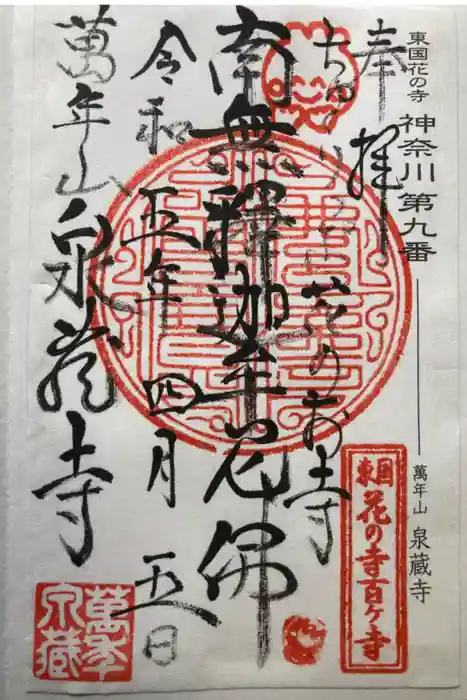 東国花の寺 神奈川第九番 萬年山 泉蔵寺
奉拝
東国花の寺百ヶ寺
花のお寺
南無釋迦牟尼佛
令和五年四月五日
萬年山泉蔵寺
萬年
泉蔵